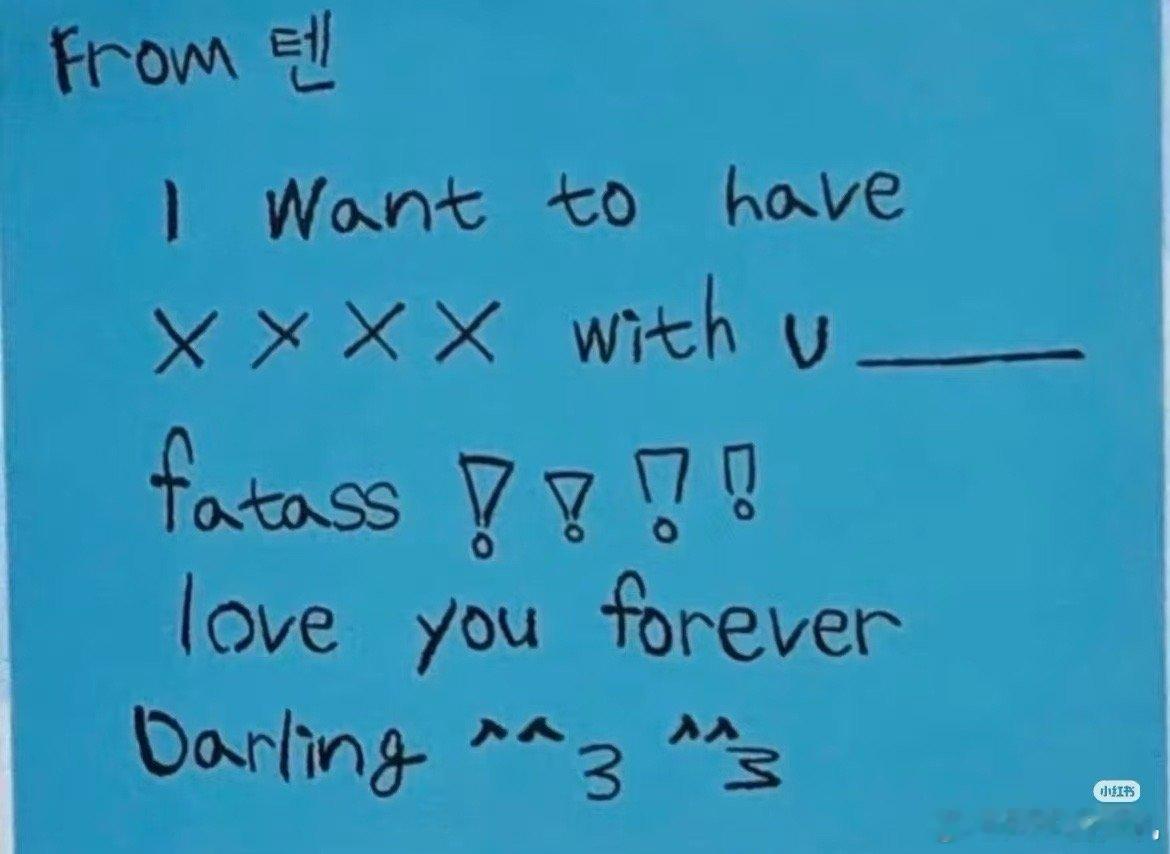 From 텐
I want to have
XXXX with u ____
fatass !!!!
love you forever
Darling ^^3 ^^3
小红书